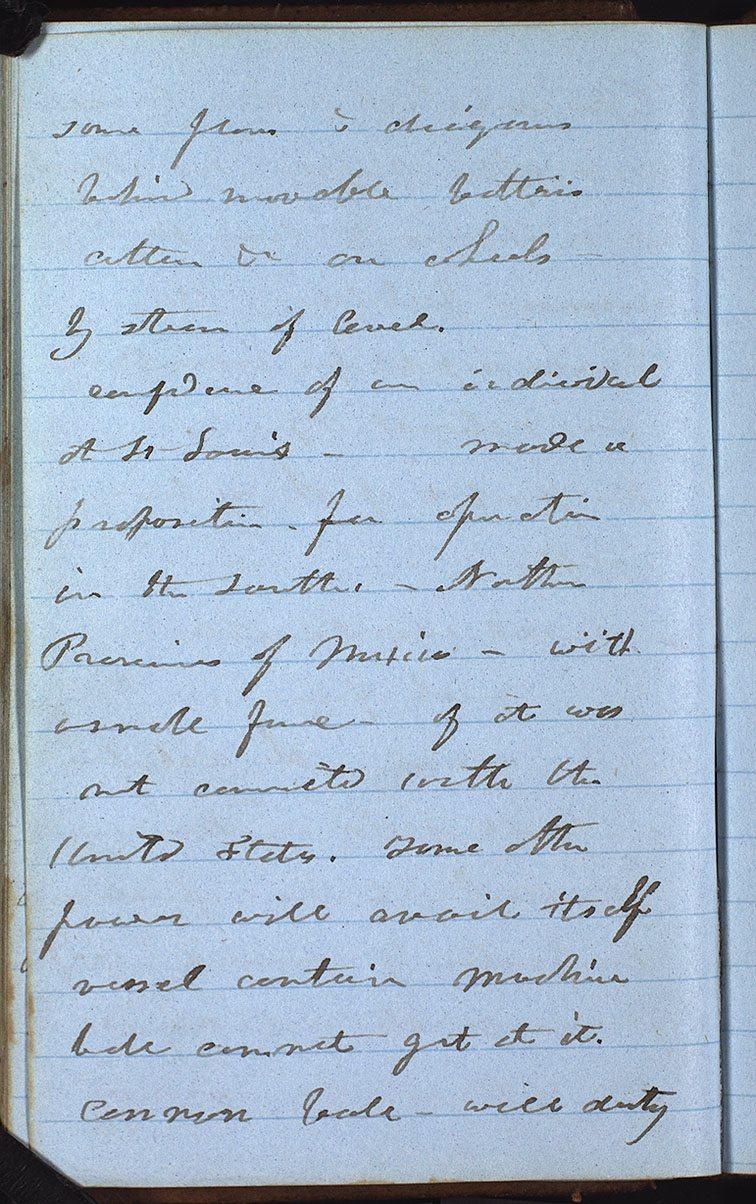 some plans & diagrams
behind movable batteries
cotton &c on wheels —
By steam if level.
confidence of an individual
at St Louis — made a
proposition for operation
in the South. — Northern
Provinces of Mexico — with
a small force — if it was
not connected with the
United States. Some other
power will avail itself
vessel contain machine
bale cannot get at it.
Common bale — will